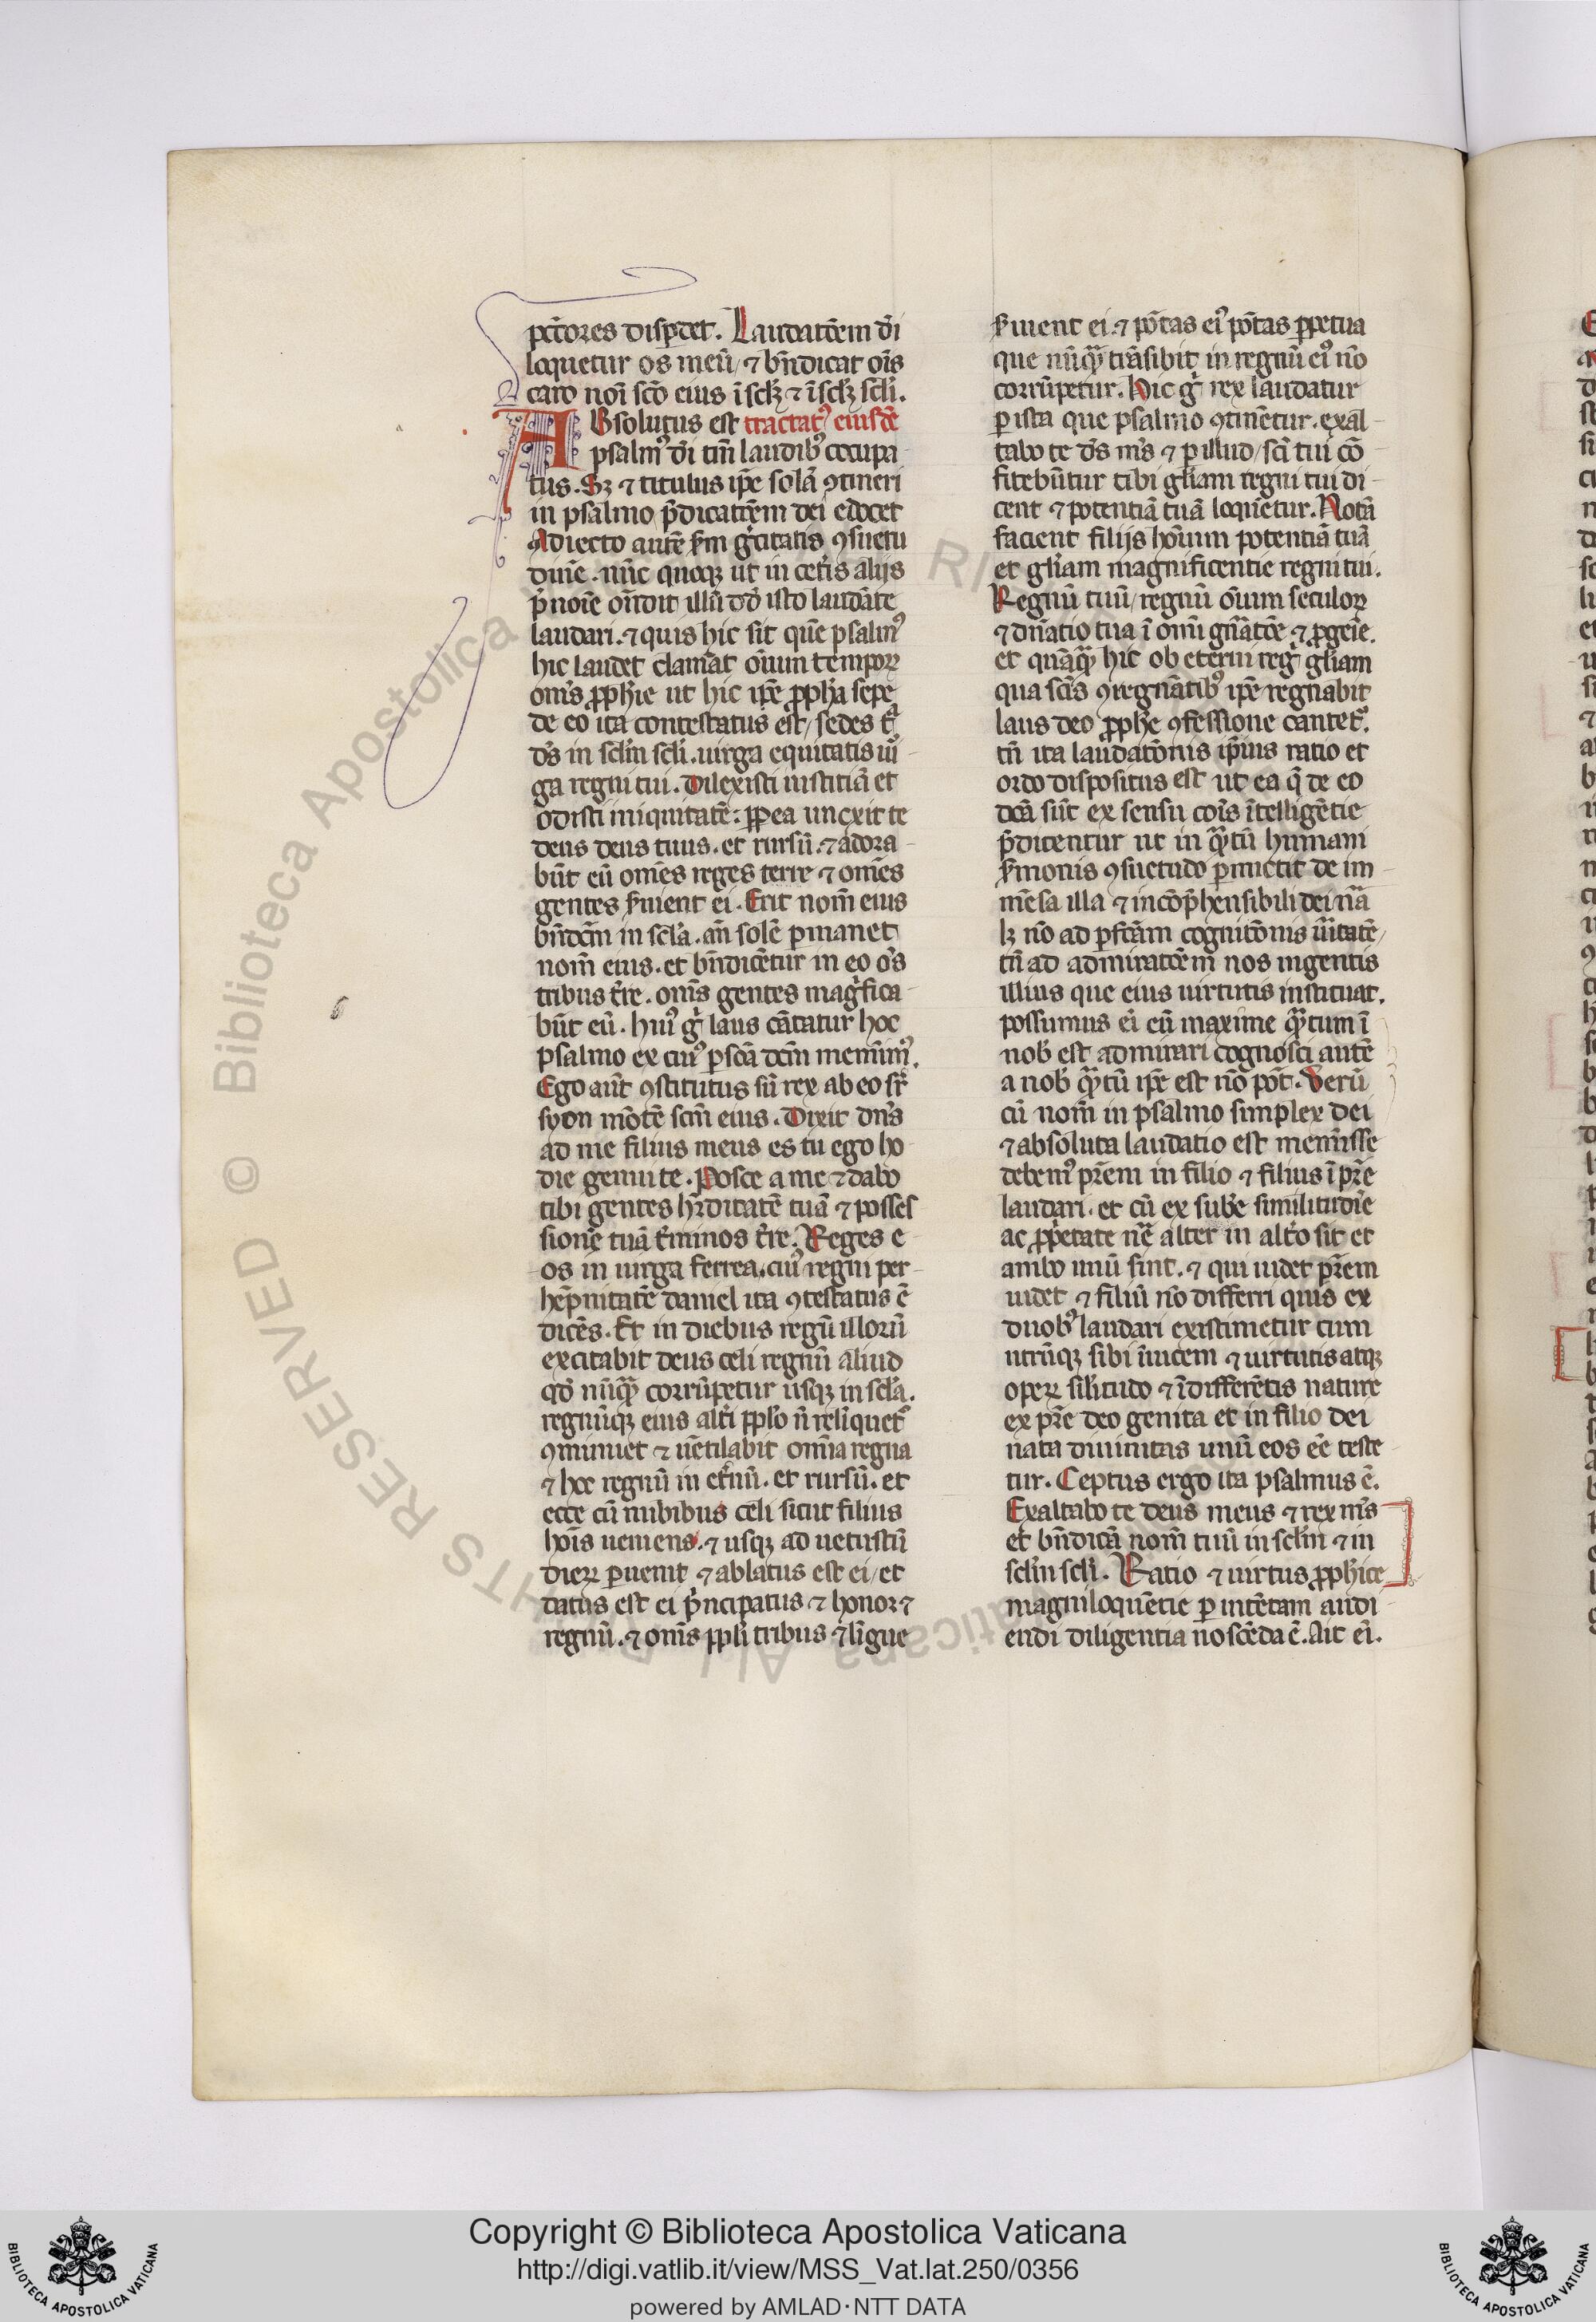 pctores disꝑdet. Laudatõem dñi
loquetur os meũ / ⁊ bñdicat oĩs
caro noĩ sc̃o eius ĩ sclꝫ ⁊ ĩ sclꝫ scli.
ABsolutus est tractatꝰ eiusdẽ
psalmꝰ dñi tm̃ laudibꝰ occupa-
tus. Sꝫ ⁊ titulus ip̃e solã ꝯtineri
in psalmo p̃dicatõem dei edocet
Adiecto autẽ ẜm gͥcitatis ꝯsuetu
dinẽ. nũc quoqꝫ ut in ceteris alijs
p̃noĩe oñdit illũ dd̃ isto laudãte
laudari. ⁊ quis hic sit quẽ psalmꝰ
hic laudet clamãt oĩum temporꝝ
oms̃ ꝓphie ut hic ip̃e ꝓpha sepe
de eo ita contestatus est / sedes tᷓ
ds̃ in sclm̃ scli. uirga equitatis uir
ga regni tui. Dilexisti iustitiã et
odisti iniquitatẽ: ꝓpea unxit te
deus deus tuus. et rursũ. ⁊ adora-
bũt eũ omẽs reges terre ⁊ omẽs
gentes ẜuient ei. Erit nom̃ eius
bñdcm̃ in scla. añ solẽ ꝑmanet
nom̃ eius. et bñdicẽtur in eo oẽs
tribus tr̃e. oms̃ gentes magͥfica-
bũt eũ. huiꝰ gͦ laus cãtatur hoc
psalmo ex cuiꝰ ꝑsõa dcm̃ meminimꝰ.
Ego aut̃ ꝯstitutus sũ rex ab eo sr̃
syon mõtẽ scm̃ eius. Dixit dñs
ad me filius meus es tu ego ho-
die genui te. Posce a me ⁊ dabo
tibi gentes hr̃ditatẽ tuã ⁊ posses
sionẽ tuã t̃minos tr̃e. Reges e-
os in uirga ferrea. cuiꝰ regni per-
hẽpnitatẽ daniel ita ꝯtestatus ẽ
dicẽs. Et in diebus regũ illorũ
excitabit deus celi regnũ aliud
qd̃ nũqᷓ corrũpetur usqꝫ in scla.
regnũqꝫ eius alt̃i ppl̃o ñ relĩquetꝰ
ꝯminuet ⁊ uẽtilabit omĩa regna
⁊ hoc regnũ in et̃nũ. et rursũ. et
ecce cũ nubibus celi sicut filius
hoĩs ueniens. ⁊ usqꝫ ad uetustũ
dierꝝ ꝑuenit ⁊ ablatus est ei / et
datus est ei p̃ncipatus ⁊ honor ⁊
regnũ. ⁊ oms̃ ppl̃i tribus ⁊ lĩgue
ẜuient ei. ⁊ pot̃as eiꝰ pot̃as ꝑpetua
que nũqᷓ trãsibit in regnũ eiꝰ nõ
corrũpetur. Hic gͦ rex laudatur
ꝑ ista que psalmo ꝯtinẽtur. exal-
tabo te ds̃ ms̃ ⁊ ꝑ illud / sc̃i tui cõ
fitebũtur tibi gl̃iam regni tui di-
cent ⁊ potentiã tuã loquẽtur. Notã
facient filijs hoĩum potentiã tuã
et gl̃iam magnificentie regni tui.
Regnũ tuũ / regnũ oĩum seculorꝝ
⁊ dñatio tua ĩ omĩ gñatõe ⁊ ꝓgeĩe.
et quãqᷓ hic ob eterni reg̃ gl̃iam
qua scĩs ꝯregnãtibꝰ ip̃e regnabit
laus deo ꝓphe ꝯfessione cantetꝰ.
tñ ita laudatõnis ip̃ius ratio et
ordo dispositus est ut ea q̃ de eo
dc̃a sũt ex sensu cõis ĩtelligẽtie
p̃dicentur ut in qᷓtũ humani
ẜmonis ꝯsuetudo ꝑmictit de im-
mẽsa illa ⁊ incõp̃hensibili dei nᷓa
lꝫ nõ ad ꝑfc̃am cognitõnis uĩtatẽ /
tñ ad admiratõem nos ingentis
illius que eius uirtutis instituat.
possumus ei eũ maxime qᷓtum ĩ
nob̃ est admirari cognosci autẽ
a nob̃ qᷓtũ ip̃e est nõ pot̃. Verũ
cũ nom̃ in psalmo simplex dei
⁊ absoluta laudatio est meminisse
debemꝰ pr̃em in filio ⁊ filius ĩ pr̃e
laudari. et cũ ex sub̃e similitudĩe
ac ꝓp̃etate nc̃e alter in alt̃o sit et
ambo unũ sint. ⁊ qui uidet pr̃em
uidet ⁊ filiũ nõ differri quis ex
duobꝰ laudari existimetur cum
utrũqꝫ sibi ĩuicem ⁊ uirtutis atqꝫ
operꝝ sil̃itudo ⁊ ĩdifferẽtis nature
ex pr̃e deo genita et in filio dei
nata diuinitas unũ eos eẽ teste-
tur. Ceptus ergo ita psalmus ẽ.
Exaltabo te deus meus ⁊ rex ms̃
et bñdicã nom̃ tuũ in sclm̃ ⁊ in
sclm̃ scli. Ratio ⁊ uirtus ꝓphice
magniloquẽtie ꝑ intẽtam audi-
endi diligentia noscẽda ẽ. Ait ei.
Copyright © Biblioteca Apostolica Vaticana
http://digi.vatlib.it/view/MSS_Vat.lat.250/0356
powered by AMLAD·NTT DATA
BIBLIOTECA APOSTOLICA VATICANA
BIBLIOTECA APOSTOLICA VATICANA